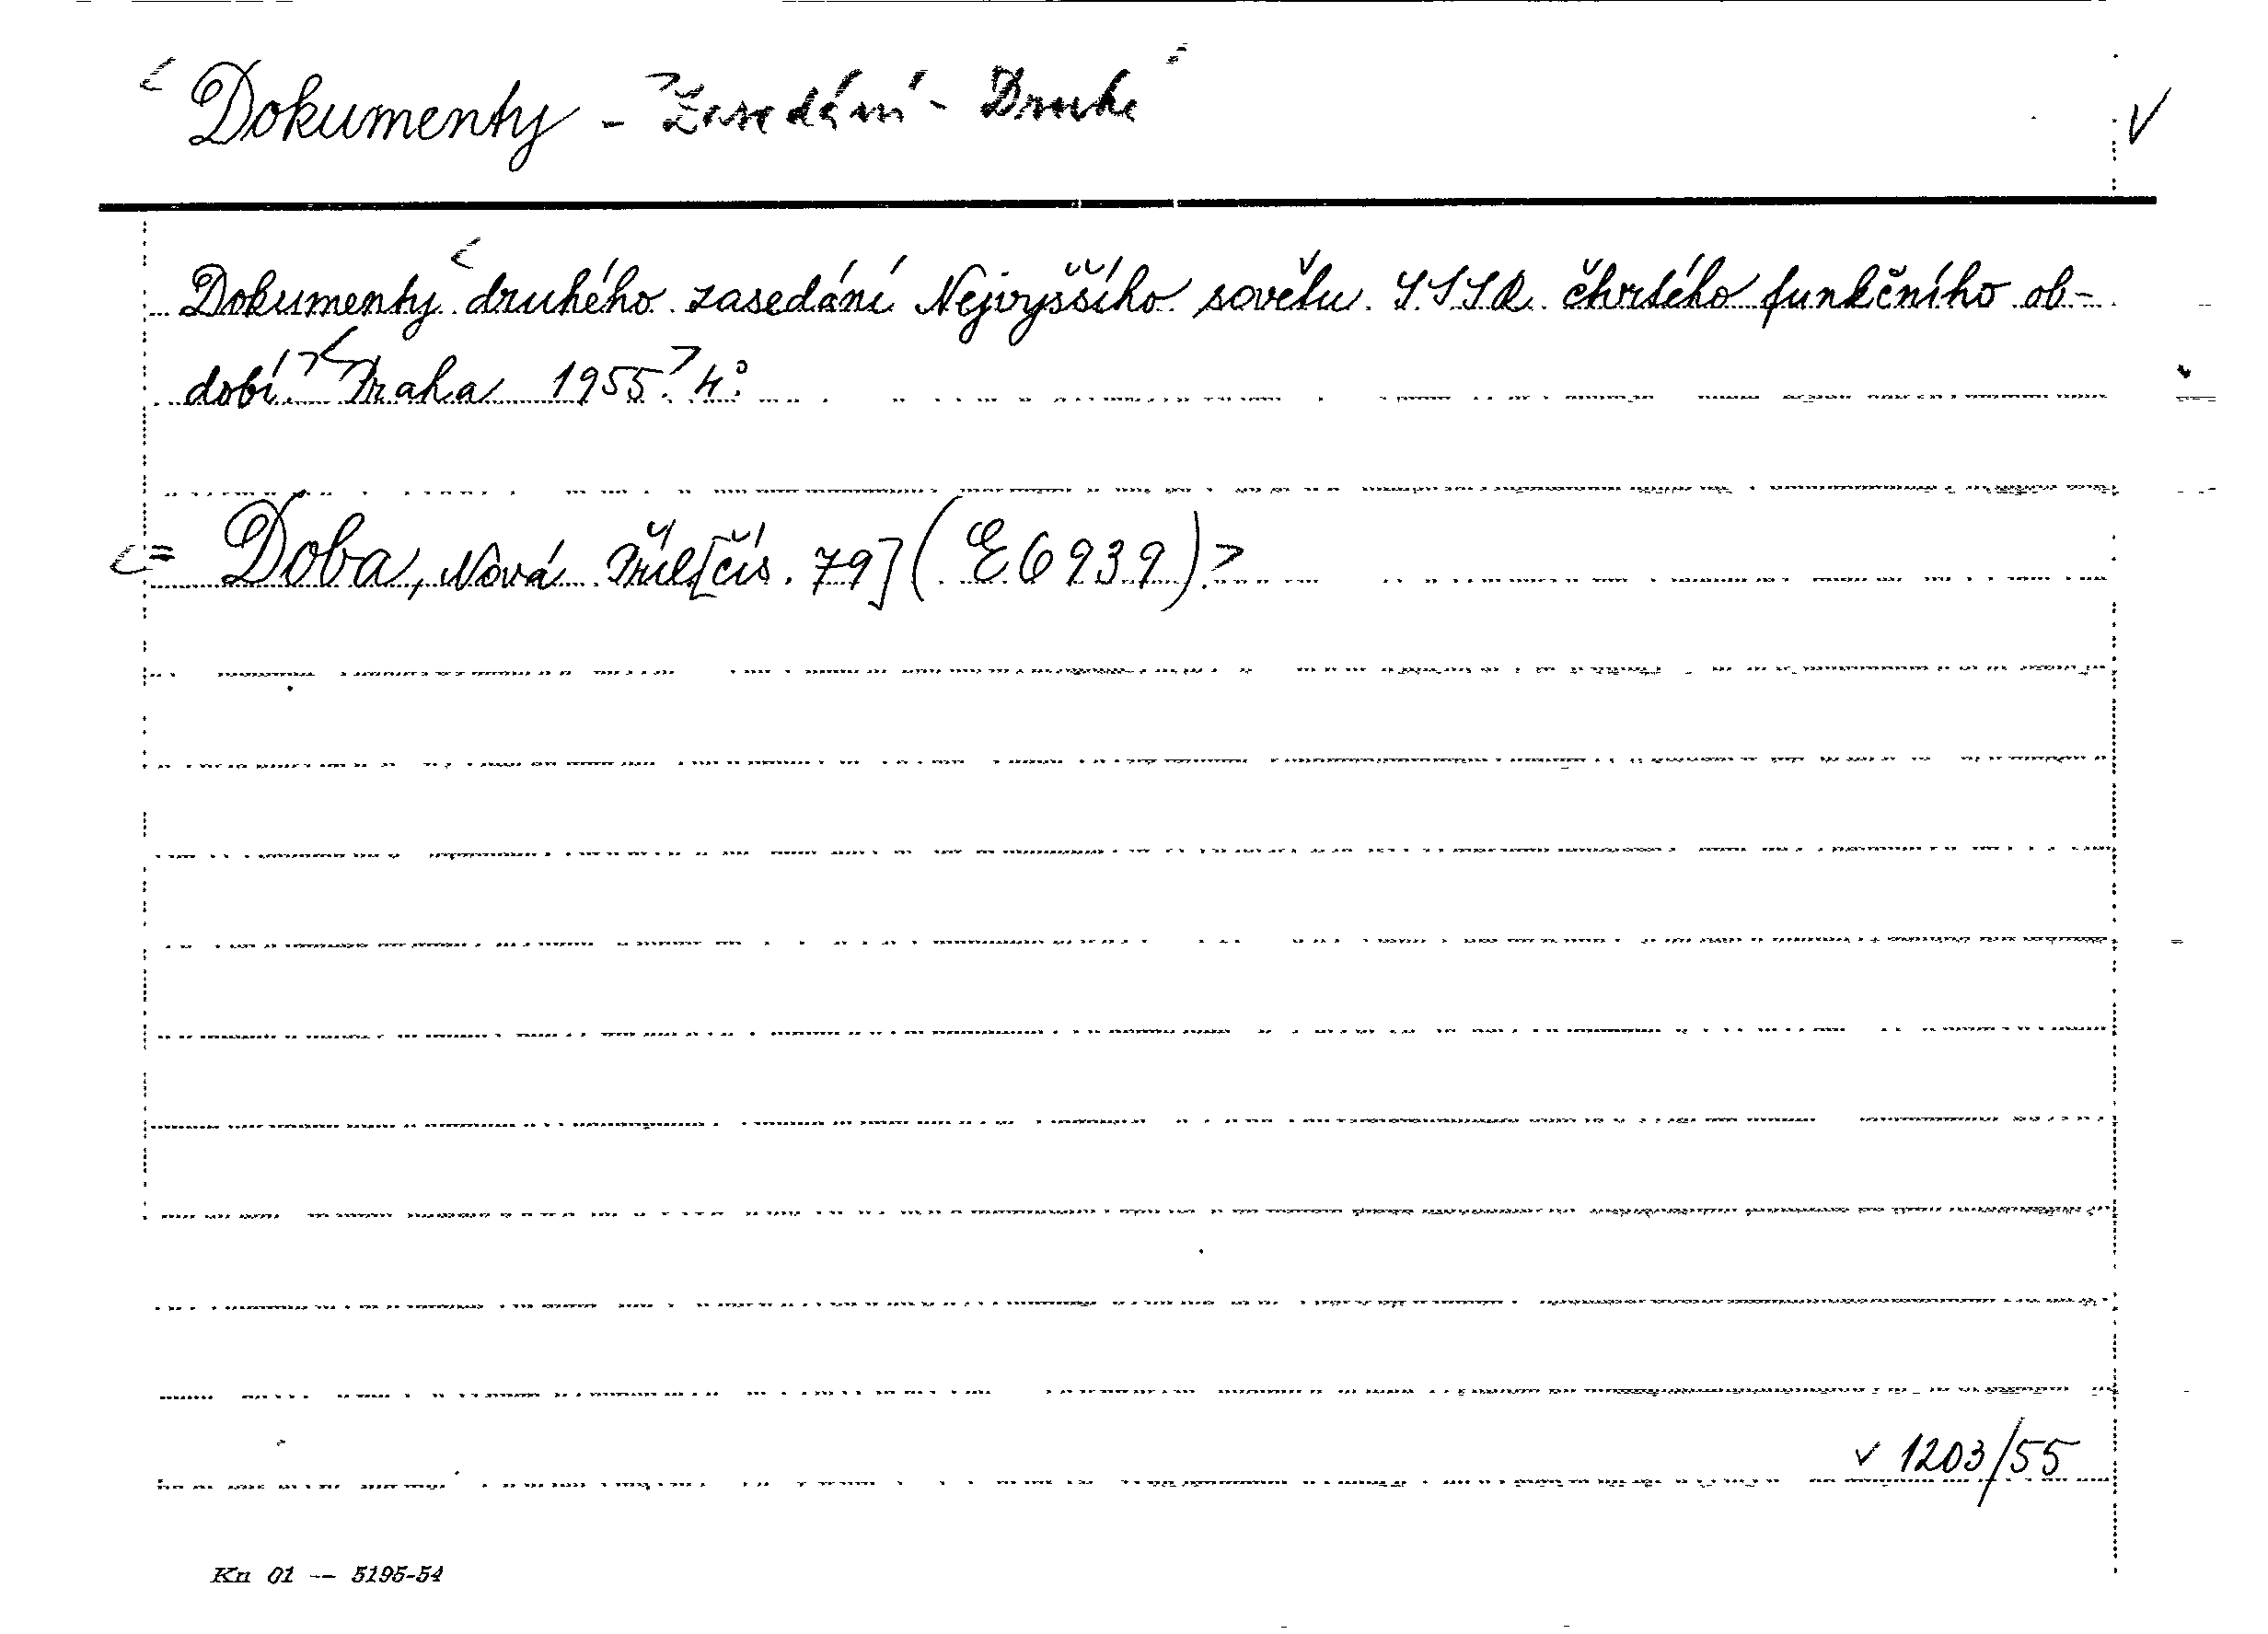 Dokumenty - Zasedání - Druhé
Dokumenty druhého zasedání Nejvyššího sovětu SSSR čtvrtého funkčního ob-
dobí. Praha 1955. 4°.
= Doba, Nová Příl[čís. 79] (E 6939).
v 1203/55
Kn 01 — 5195-54